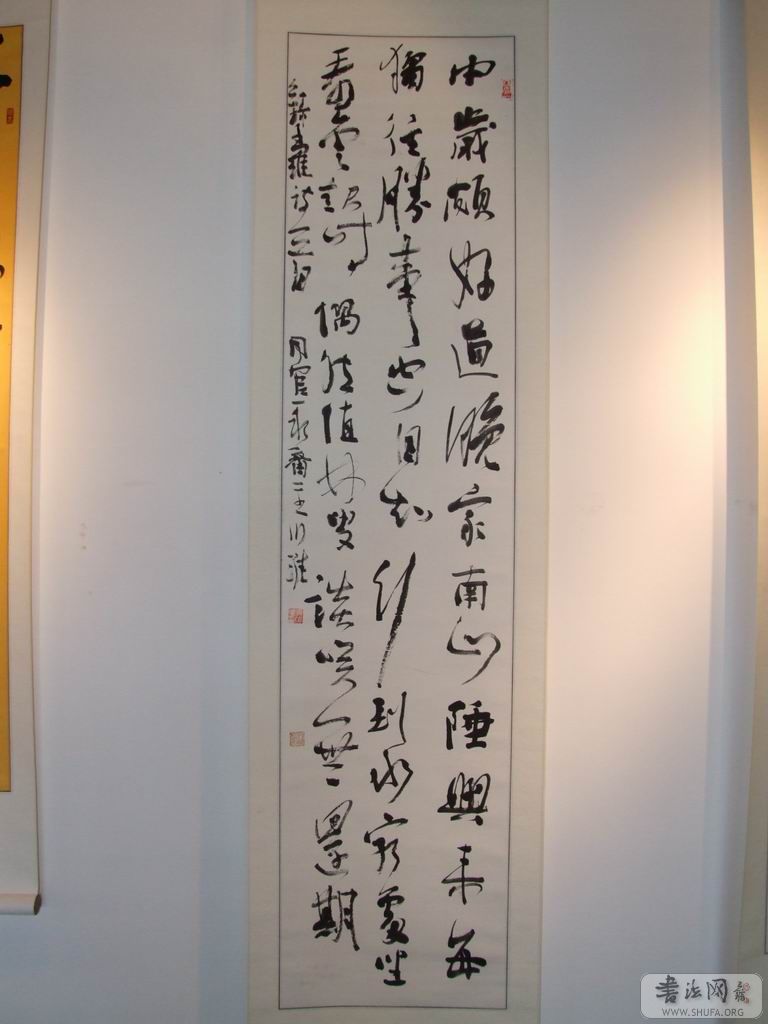 中歲頗好道晚家南山陲興來每
獨往勝事空自知行到水窮處坐
看雲起時偶然值林叟談笑無還期
錄王維詩一首
書法网
WWW.SHUFA.ORG